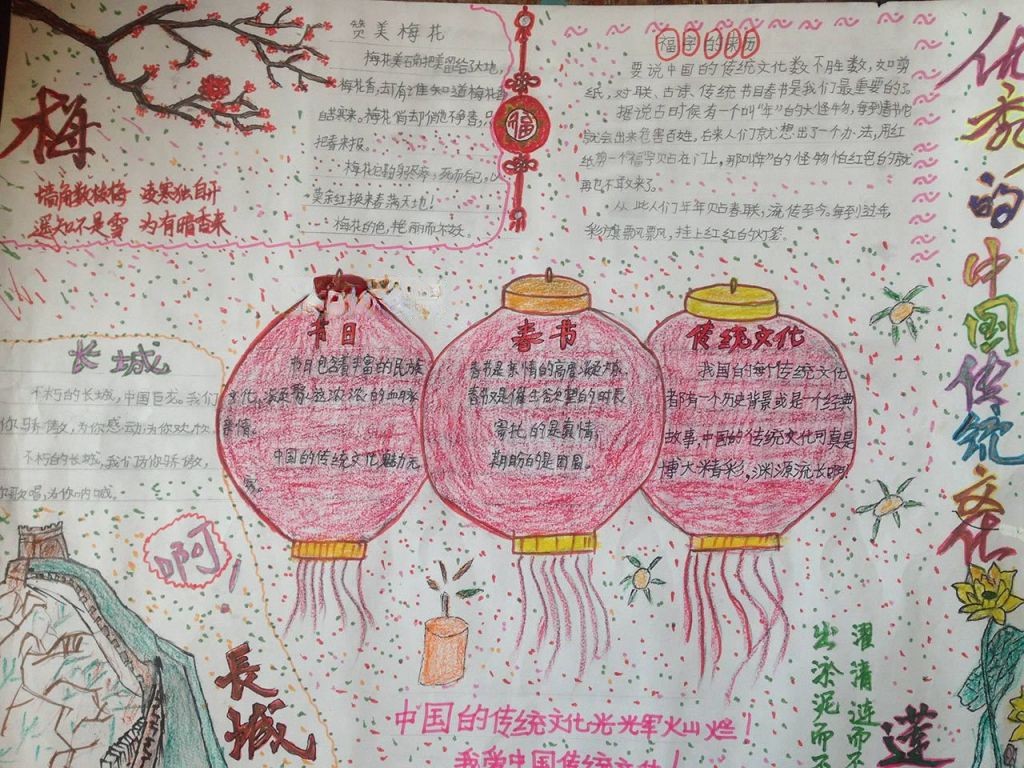 赞美梅花
梅花美丽把美留给了大地，
梅花香，却有谁知道梅花香
自苦寒来。梅花俏却俏也不争春，只
把春来报。
梅花
梅花的他，艳丽而不妖。
梅
墙角数枝梅 凌寒独自开
遥知不是雪 为有暗香来
福
福字的来历
要说中国的传统文化数不胜数，如剪
纸，对联、古诗、传统节日春节是我们最重要的了。
据说古时候有一个叫“年”的大怪物，每到春节它
就会出来危害百姓，后来人们就想出了一个办法，用红
纸剪一个福字贴在门上，那叫“年”的怪物怕红色的就
再也不敢来了。
从此人们年年贴春联，流传至今，每到过年
彩旗飘飘，挂上红红的灯笼。
优秀的中国传统文化
长城
不朽的长城，中国巨龙。我们
你骄傲，为你感动为你欢欣
不朽的长城，我们为你骄傲，
你歌唱，为你呐喊。
啊！
長城
节日
节日包含着丰富的民族
文化，凝聚着浓浓的血脉
亲情。
中国的传统文化魅力无
穷。
春节
春节是亲情的高度凝聚
春节是
寄托的是真情，
期盼的是团圆。
传统文化
我国的每个传统文化
都有一个历史背景或是一个经典
故事，中国的传统文化可真是
博大精彩，渊源流长啊。
中国的传统文化光光军火山烂！
我爱中国传统文化！
出淤泥而不
濯清涟而不
莲